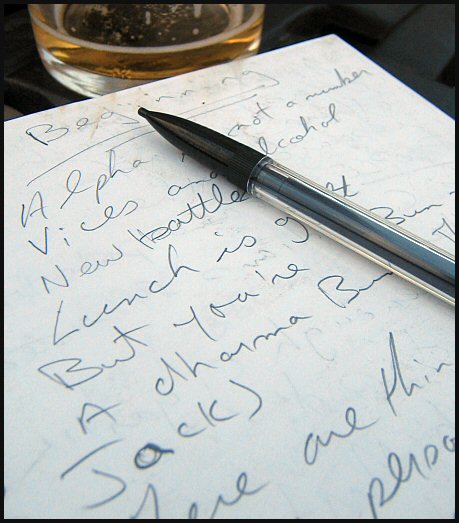 Beginning
Alpha is not a number
Vices and alcohol
New battle
Lunch is
But you're Bun
A dharma Bum
Jacks
are thin